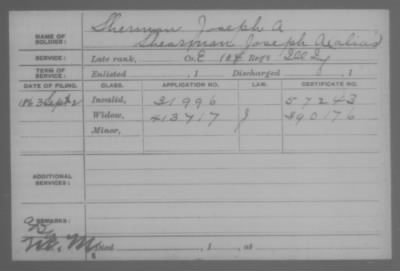 NAME OF SOLDIER: Sherman Joseph A
Shearman Joseph A (alias)
SERVICE: Late rank, Co. E 104 Regt Ill Inf
TERM OF SERVICE: Enlisted , 1 Discharged , 1
DATE OF FILING. CLASS. APPLICATION NO. LAW. CERTIFICATE NO.
1863 Sept 2 Invalid, 31996 57243
Widow, 413717 J 390176
Minor,
ADDITIONAL SERVICES:
REMARKS:
Died , 1 , at